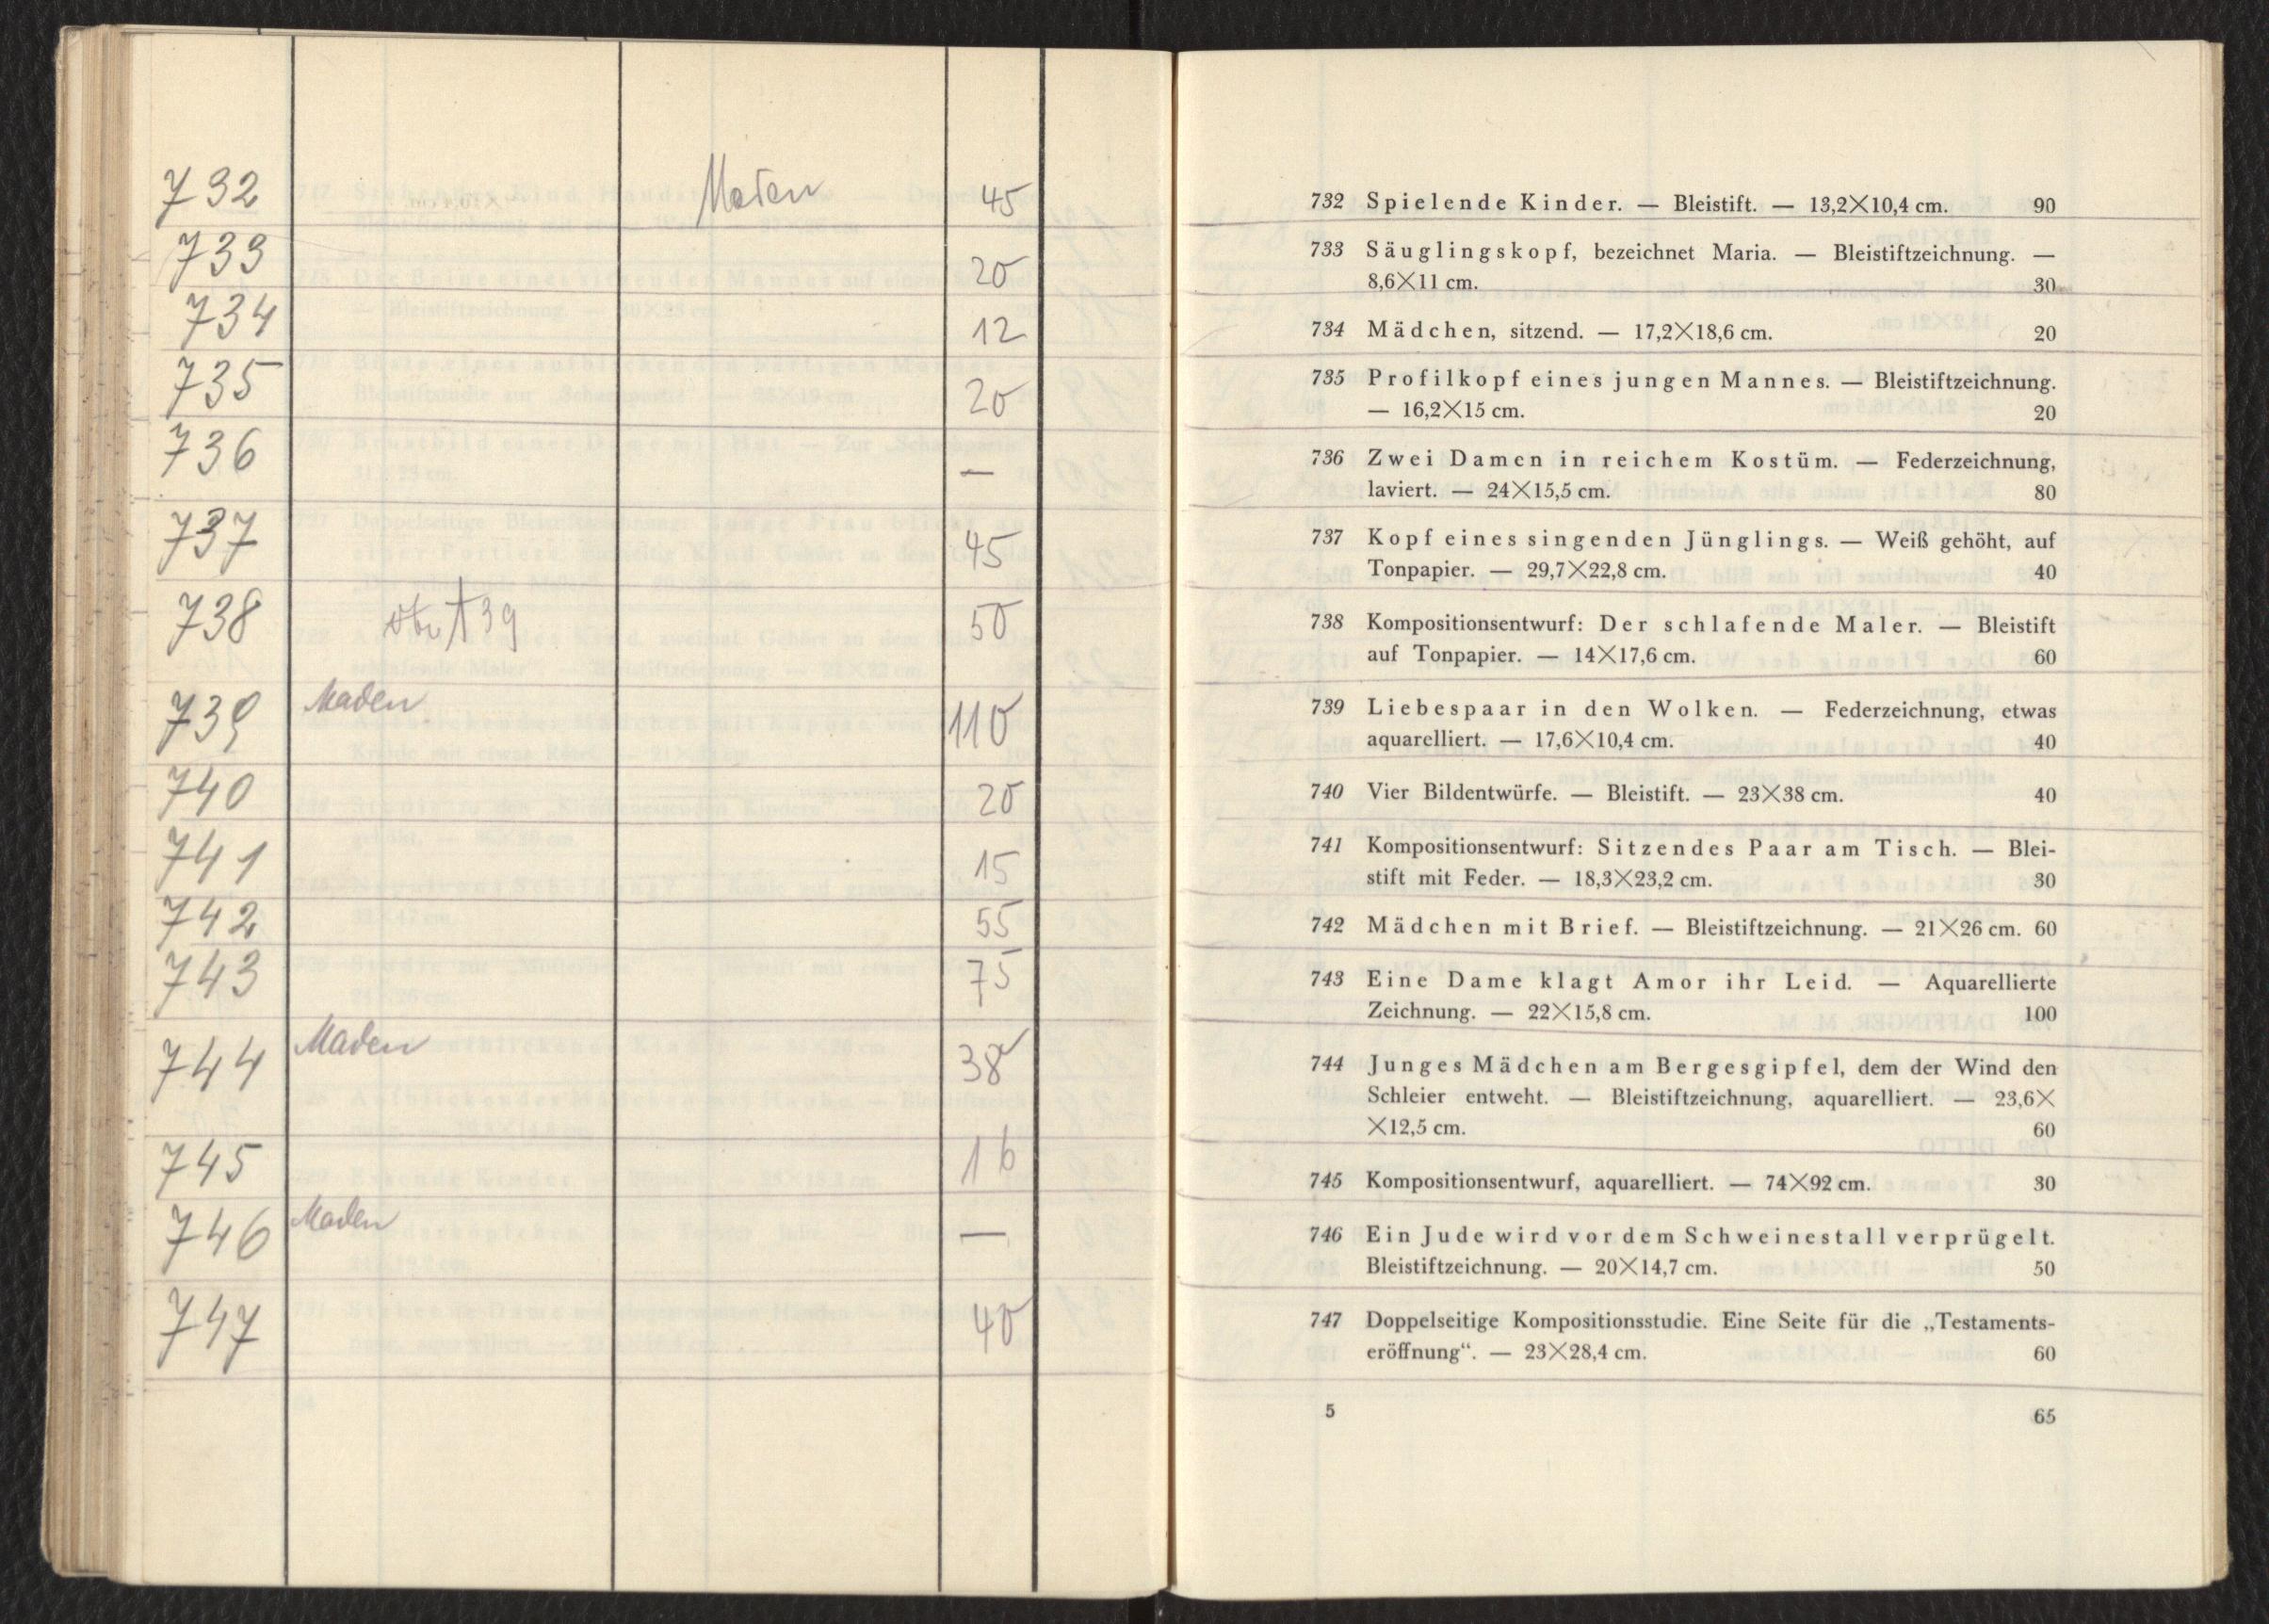 732 Maden 45
733 20
734 12
735 20
736 —
737 45
738 50
739 Maden 110
740 20
741 15
742 55
743 75
744 Maden 38
745 16
746 Maden —
747 40
732 Spielende Kinder. — Bleistift. — 13,2×10,4 cm. 90
733 Säuglingskopf, bezeichnet Maria. — Bleistiftzeichnung. —
8,6×11 cm. 30
734 Mädchen, sitzend. — 17,2×18,6 cm. 20
735 Profilkopf eines jungen Mannes. — Bleistiftzeichnung.
— 16,2×15 cm. 20
736 Zwei Damen in reichem Kostüm. — Federzeichnung,
laviert. — 24×15,5 cm. 80
737 Kopf eines singenden Jünglings. — Weiß gehöht, auf
Tonpapier. — 29,7×22,8 cm. 40
738 Kompositionsentwurf: Der schlafende Maler. — Bleistift
auf Tonpapier. — 14×17,6 cm. 60
739 Liebespaar in den Wolken. — Federzeichnung, etwas
aquarelliert. — 17,6×10,4 cm. 40
740 Vier Bildentwürfe. — Bleistift. — 23×38 cm. 40
741 Kompositionsentwurf: Sitzendes Paar am Tisch. — Blei-
stift mit Feder. — 18,3×23,2 cm. 30
742 Mädchen mit Brief. — Bleistiftzeichnung. — 21×26 cm. 60
743 Eine Dame klagt Amor ihr Leid. — Aquarellierte
Zeichnung. — 22×15,8 cm. 100
744 Junges Mädchen am Bergesgipfel, dem der Wind den
Schleier entweht. — Bleistiftzeichnung, aquarelliert. — 23,6×
×12,5 cm. 60
745 Kompositionsentwurf, aquarelliert. — 74×92 cm. 30
746 Ein Jude wird vor dem Schweinestall verprügelt.
Bleistiftzeichnung. — 20×14,7 cm. 50
747 Doppelseitige Kompositionsstudie. Eine Seite für die „Testaments-
eröffnung“. — 23×28,4 cm. 60
5 65